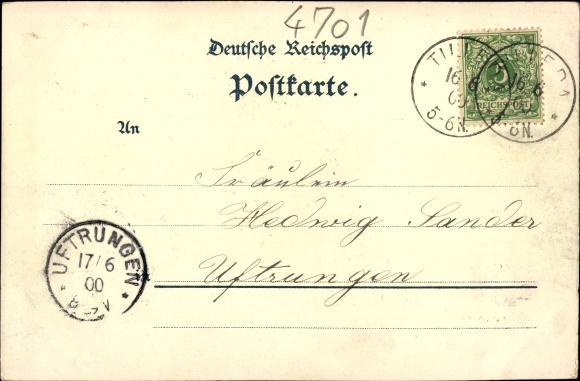 4701
Deutsche Reichspost
Postkarte.
16 6
00
5-6N.
5
REICHSPOST
16 6
6N.
An
Fräulein
Hedwig Sander
Uftrungen
UFTRUNGEN
17/6
00